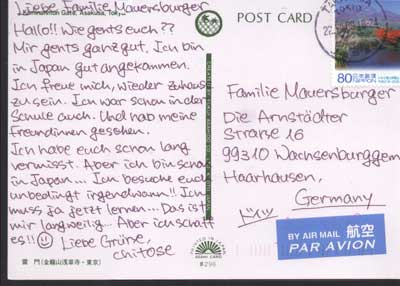 Liebe Familie Mauersburger
Kaminarimon Gate, Asakusa, Tokyo
Hallo!! Wie gents euch??
Mir gents ganz gut. Ich bin
in Japan gut angekommen.
Ich freue mich, wieder zuhause
zu sein. Ich war schon in der
Schule auch. Und hab meine
Freundinnen gesehen.
Ich habe euch schon lang
vermisst. Aber ich bin schon
in Japan... Ich besuche euch
unbedingt irgendwann!! Ich
muss ja jetzt lernen... Das ist
mir langweilig... Aber ich schaff
es!!
Liebe Grüne,
chitose
雷 門(金龍山浅草寺・東京)
POST CARD
80 日本郵便
NIPPON
Familie Mauersburger
Die Arnstädter
Straße 16
99310 Wachsenburggem
Haarhausen,
Germany
ドイツ
BY AIR MAIL 航空
PAR AVION
#296